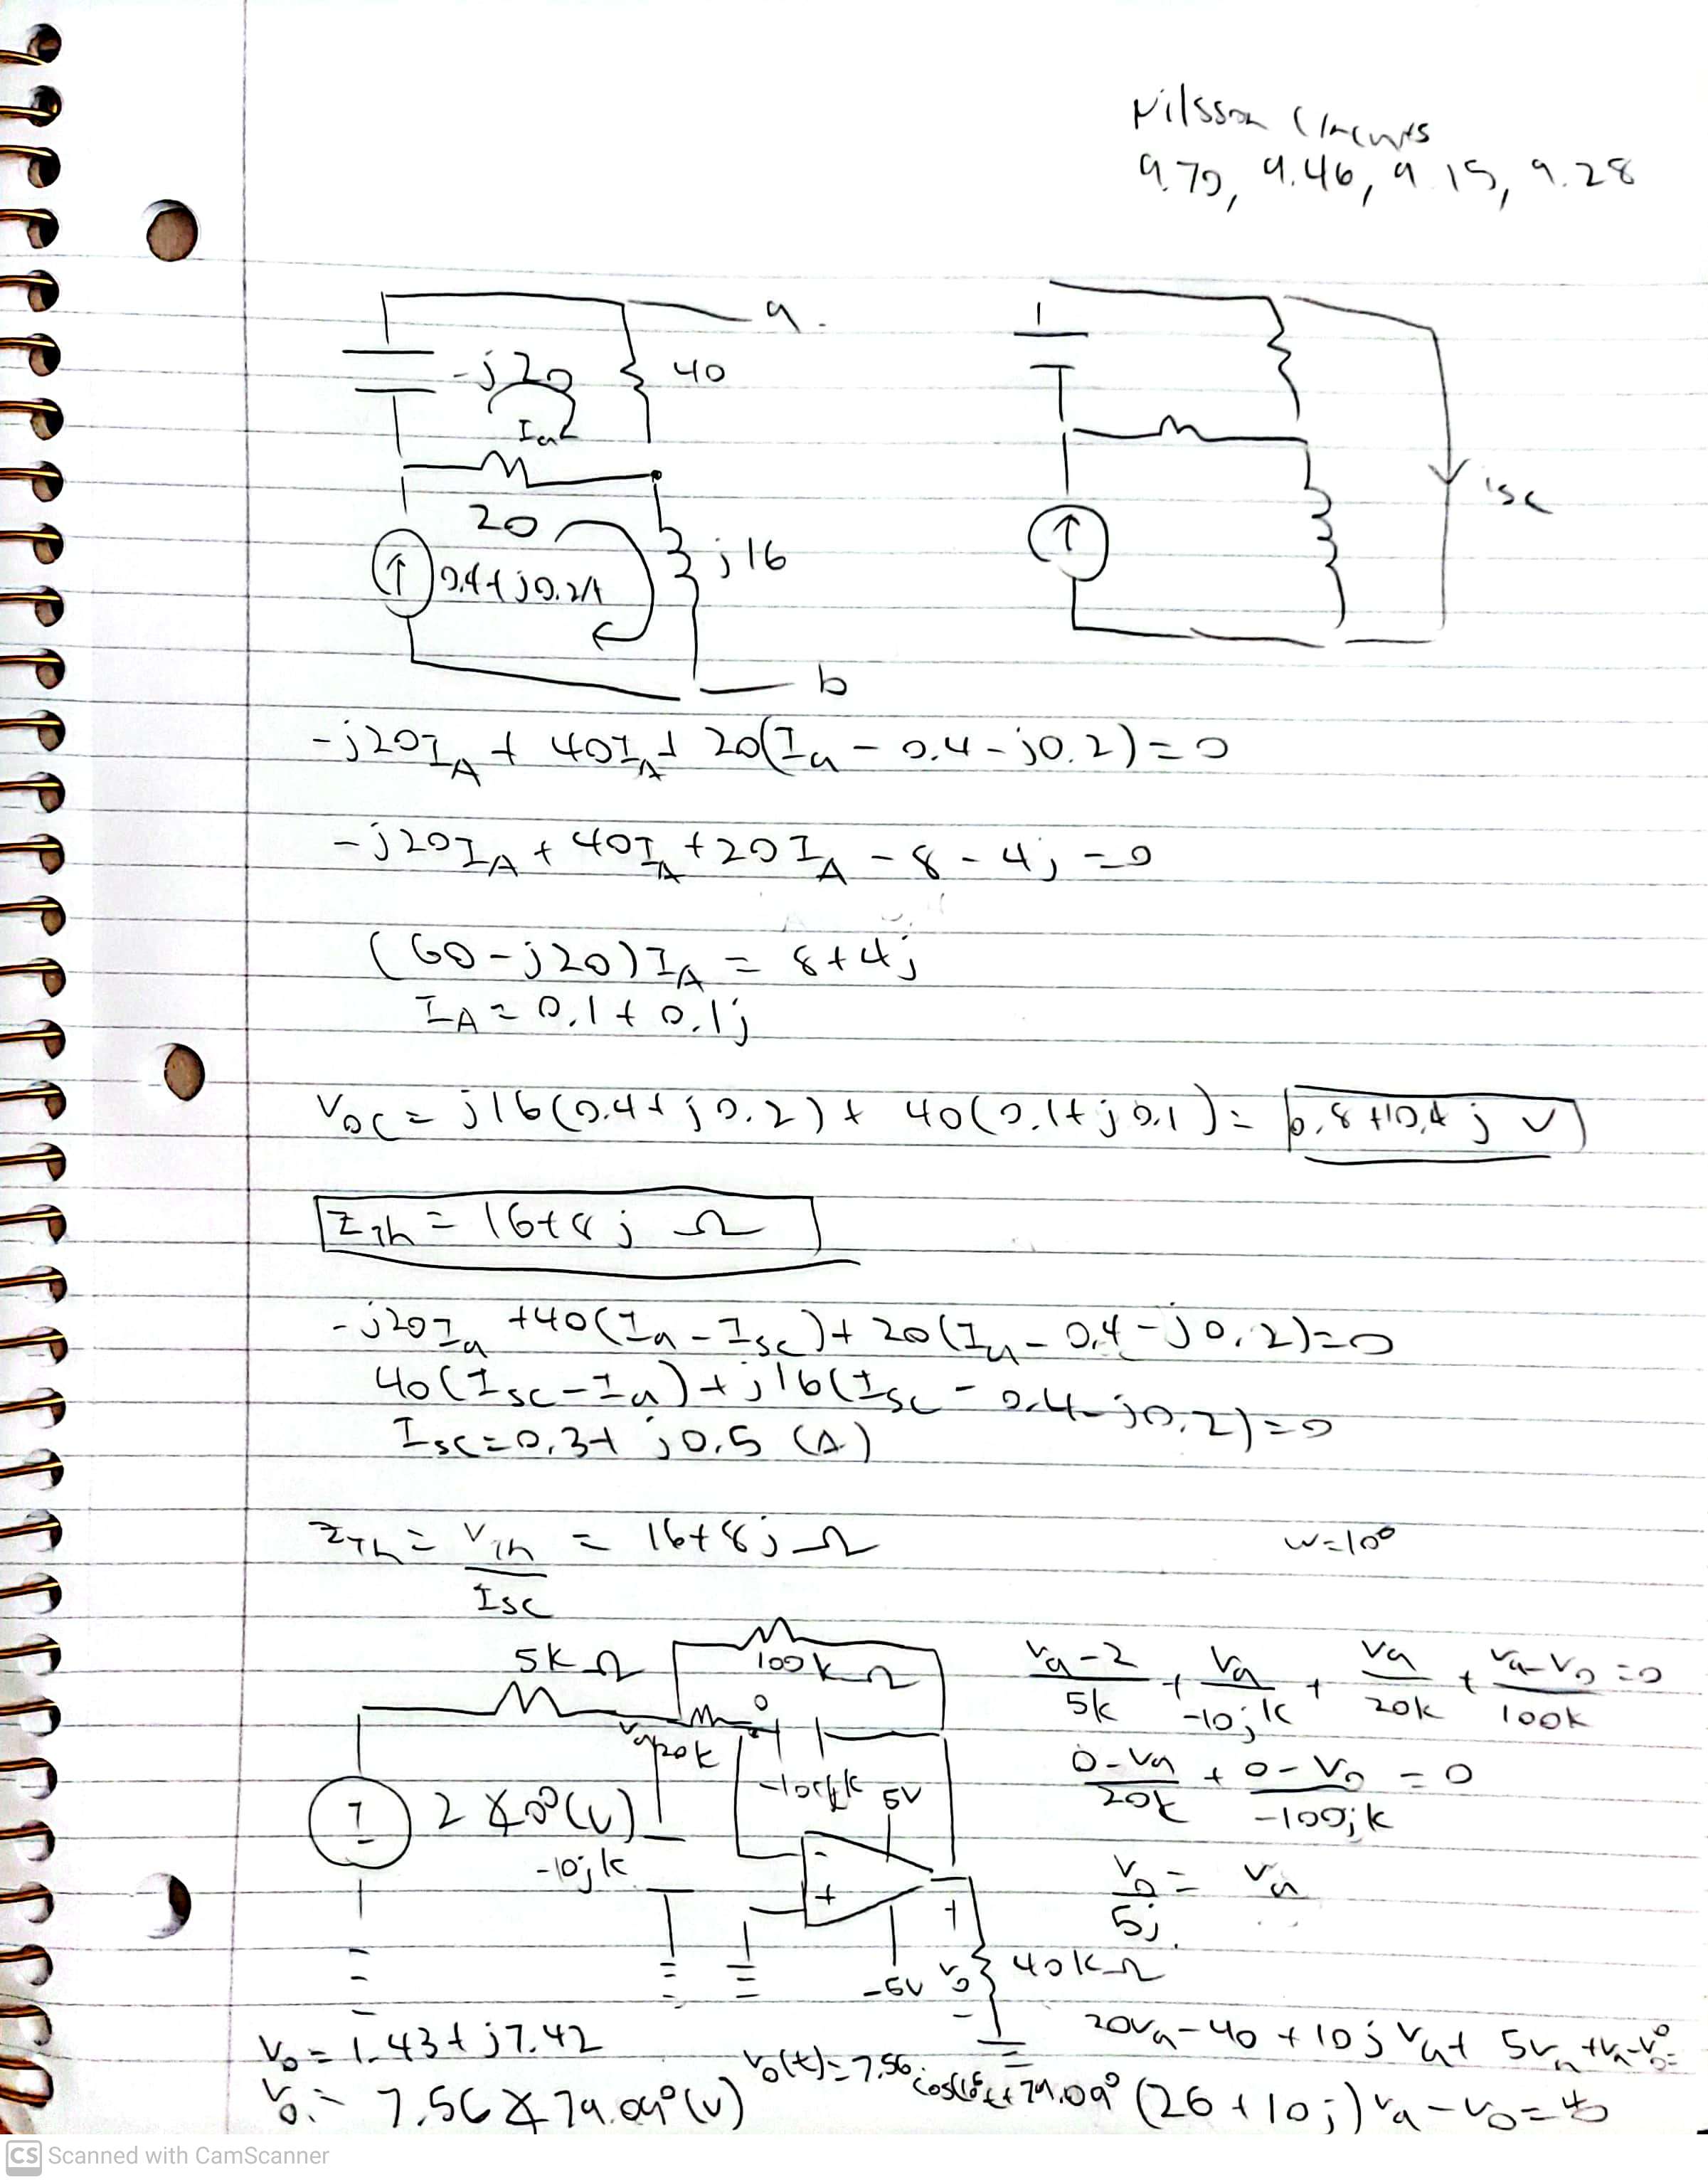 Nilsson Circuits
9.70, 9.46, 9.15, 9.28
a
-j20
40
Ia
20
0.4+j0.2A
j16
b
isc
-j20I_A + 40I_A + 20(Ia - 0.4 - j0.2) = 0
-j20I_A + 40I_A + 20I_A - 8 - 4j = 0
(60 - j20)I_A = 8+4j
I_A = 0.1 + 0.1j
Voc = j16(0.4+j0.2) + 40(0.1+j0.1) = 0.8+10.4j V
Z_Th = 16+8j Ω
-j20Ia + 40(Ia - Isc) + 20(Ia - 0.4 - j0.2) = 0
40(Isc - Ia) + j16(Isc - 0.4 - j0.2) = 0
Isc = 0.3+j0.5 (A)
Z_Th = V_Th/Isc = 16+8j Ω
5kΩ
100kΩ
0
Va
20k
5V
2∡0°(V)
-10jk
-
+
-5V
+
Vo
-
40kΩ
(Va-2)/5k + Va/-10jk + Va/20k + (Va-Vo)/100k = 0
(0-Va)/20k + (0-Vo)/-100jk = 0
Vo/5j = Va
20Va - 40 + 10jVa + 5Va + Va - Vo = 0
(26+10j)Va - Vo = 40
Vo = 1.43+j7.42
Vo = 7.56∡79.09°(V)
CS Scanned with CamScanner